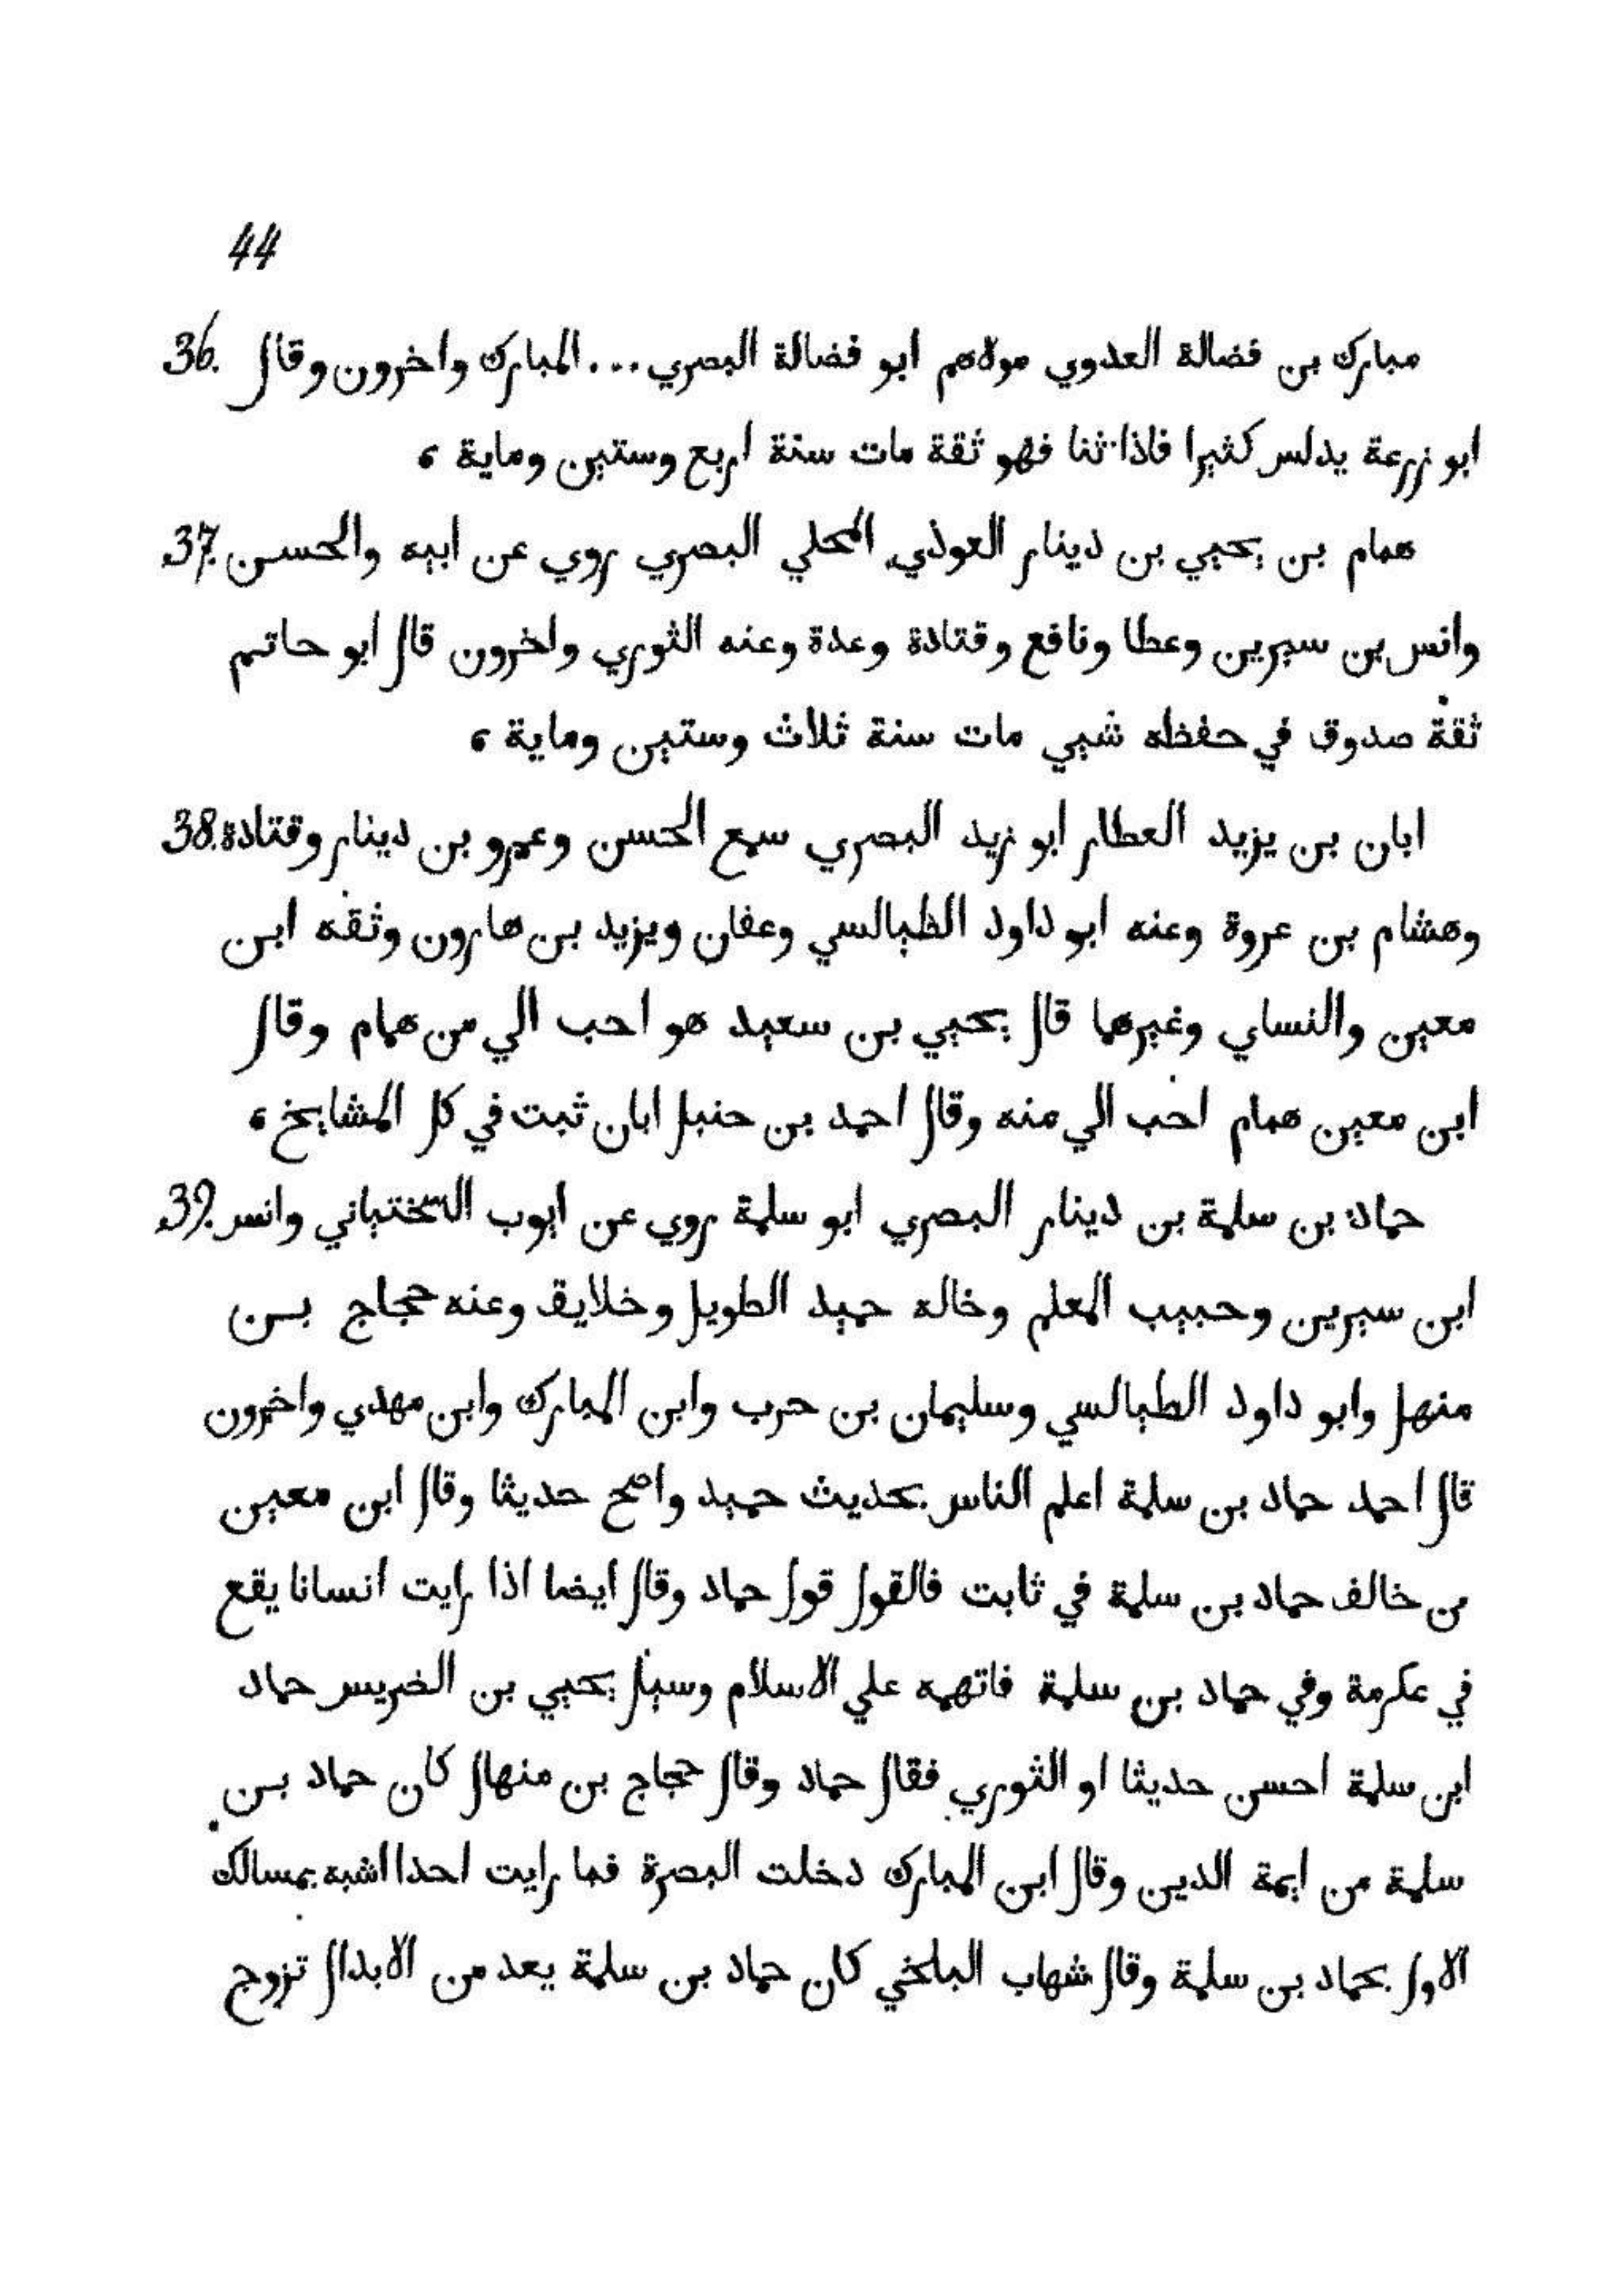 44
مبارك بن فضالة العدوي مولاهم ابو فضالة البصري ... المبارك واخرون وقال 36.
ابو زرعة يدلس كثيرا فاذا ثنا فهو ثقة مات سنة اربع وستين وماية ،
همام بن يحيي بن دينار العوذي المحلي البصري روي عن ابيه والحسن 37.
وانس بن سيرين وعطا ونافع وقتادة وعدة وعنه الثوري واخرون قال ابو حاتم
ثقة صدوق في حفظه شيي مات سنة ثلاث وستين وماية ،
ابان بن يزيد العطار ابو زيد البصري سمع الحسن وعمرو بن دينار وقتادة 38.
وهشام بن عروة وعنه ابو داود الطيالسي وعفان ويزيد بن هارون وثقه ابن
معين والنساي وغيرهما قال يحيي بن سعيد هو احب الي من همام وقال
ابن معين همام احب الي منه وقال احمد بن حنبل ابان ثبت في كل المشايخ ،
حماد بن سلمة بن دينار البصري ابو سلمة روي عن ايوب السختياني وانس 39.
ابن سيرين وحبيب المعلم وخاله حميد الطويل وخلايق وعنه حجاج بن
منهل وابو داود الطيالسي وسليمان بن حرب وابن المبارك وابن مهدي واخرون
قال احمد حماد بن سلمة اعلم الناس بحديث حميد واصح حديثا وقال ابن معين
من خالف حماد بن سلمة في ثابت فالقول قول حماد وقال ايضا اذا رايت انسانا يقع
في عكرمة وفي حماد بن سلمة فاتهمه علي الاسلام وسيل يحيي بن الضريس حماد
ابن سلمة احسن حديثا او الثوري فقال حماد وقال حجاج بن منهال كان حماد بن
سلمة من ايمة الدين وقال ابن المبارك دخلت البصرة فما رايت احدا اشبه بمسالك
الاول بحماد بن سلمة وقال شهاب البلخي كان حماد بن سلمة يعد من الابدال تزوج